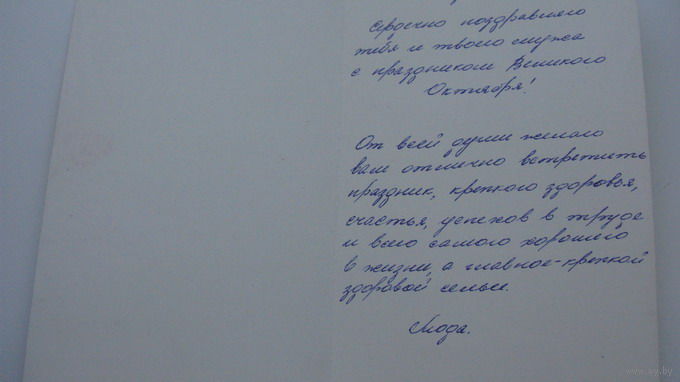 Сердечно поздравляю
тебя и твоего мужа
с праздником Великого
Октября!
От всей души желаю
вам отлично встретить
праздник, крепкого здоровья,
счастья, успехов в труде
и всего самого хорошего
в жизни, а главное - крепкой
здоровой семьи.
Люда.
www.ay.by